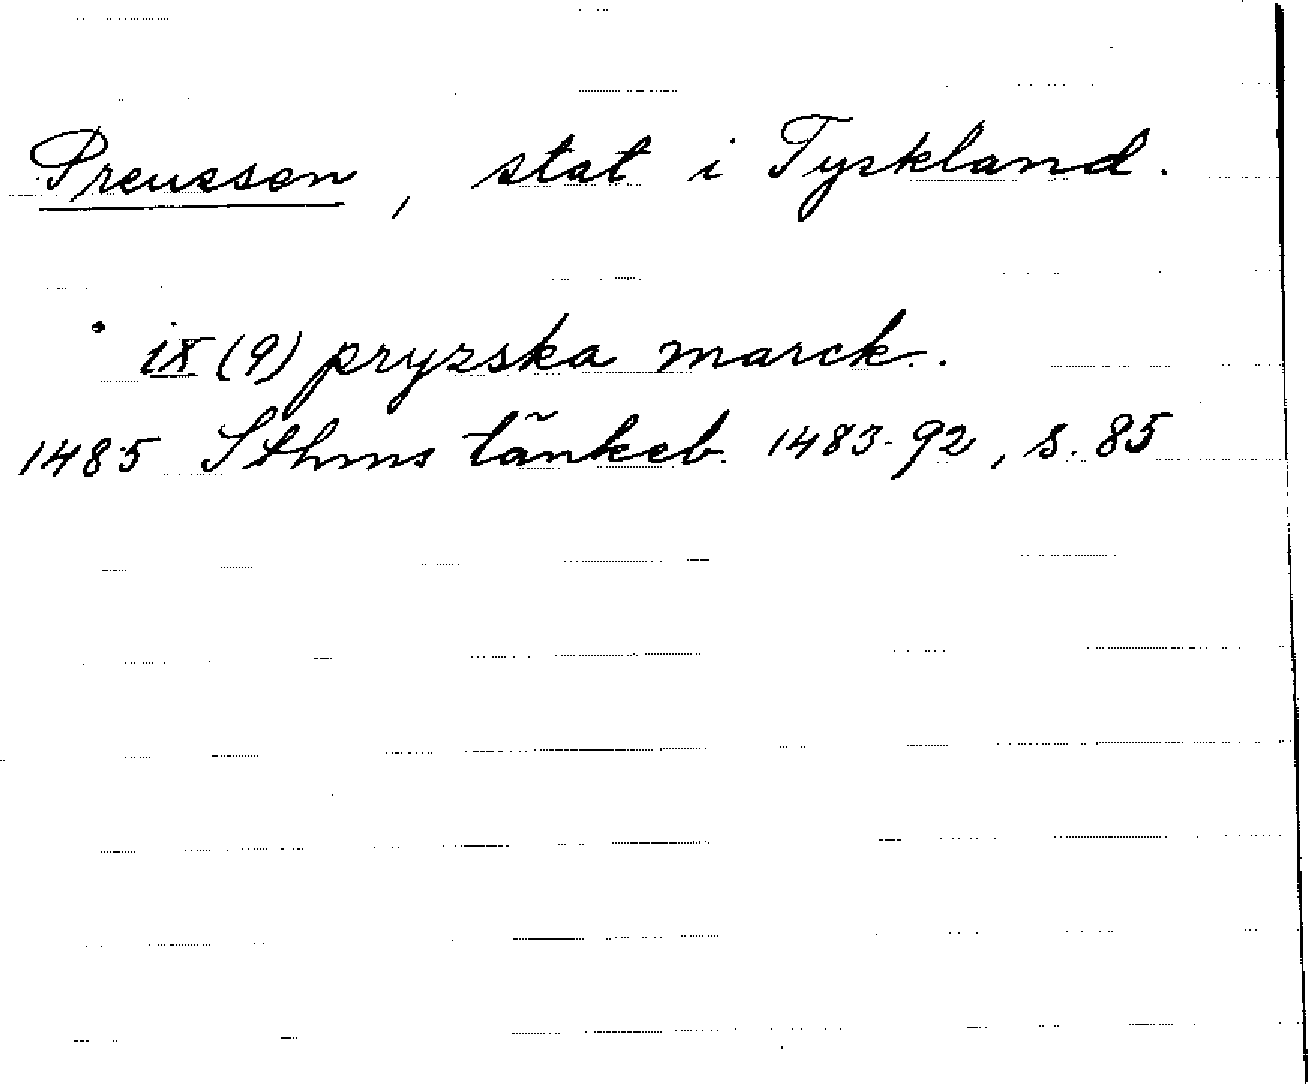 Preussen, stat i Tyskland.
ix (9) pryzska marck.
1485 Sthms tänkeb. 1483-92, s. 85